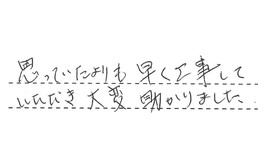 思っていたよりも早く工事して
いただき大変助かりました。